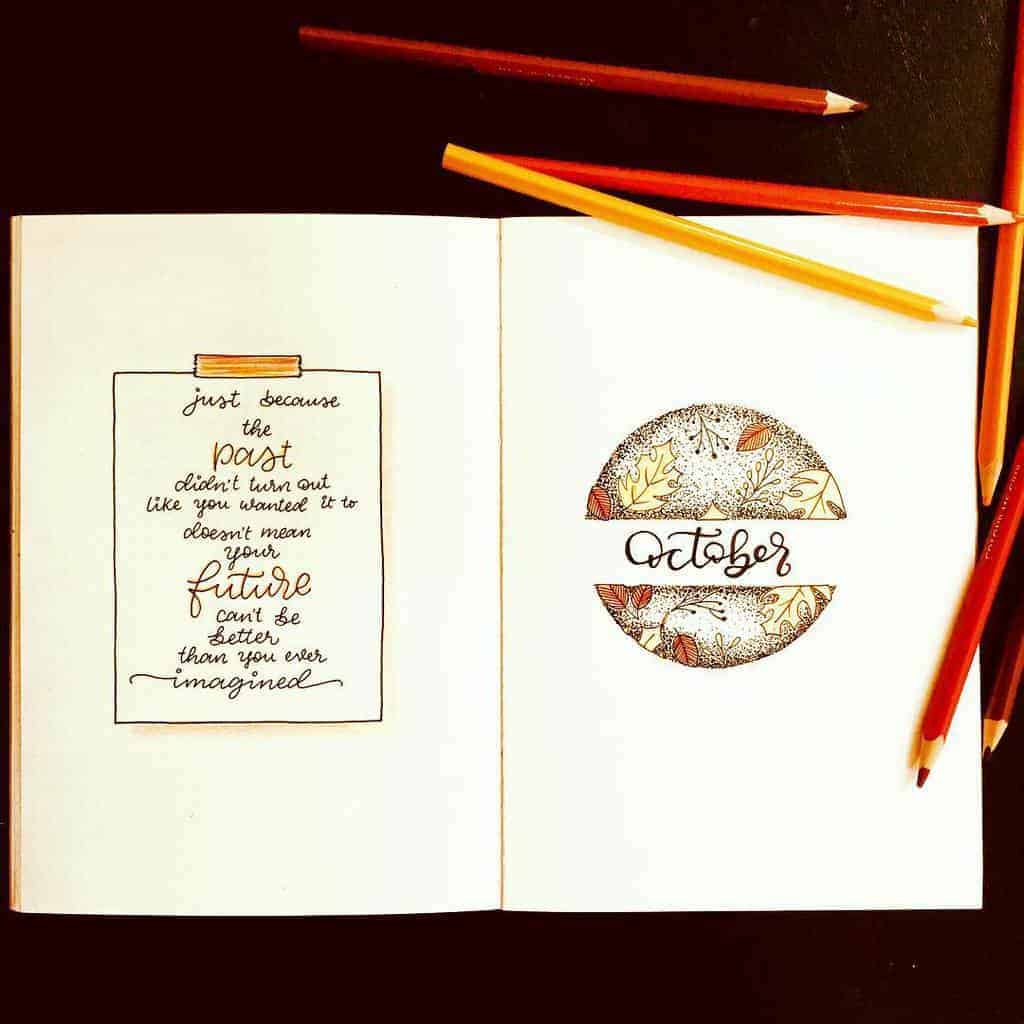 just because
the
past
didn't turn out
like you wanted it to
doesn't mean
your
future
can't be
better
than you ever
imagined
October